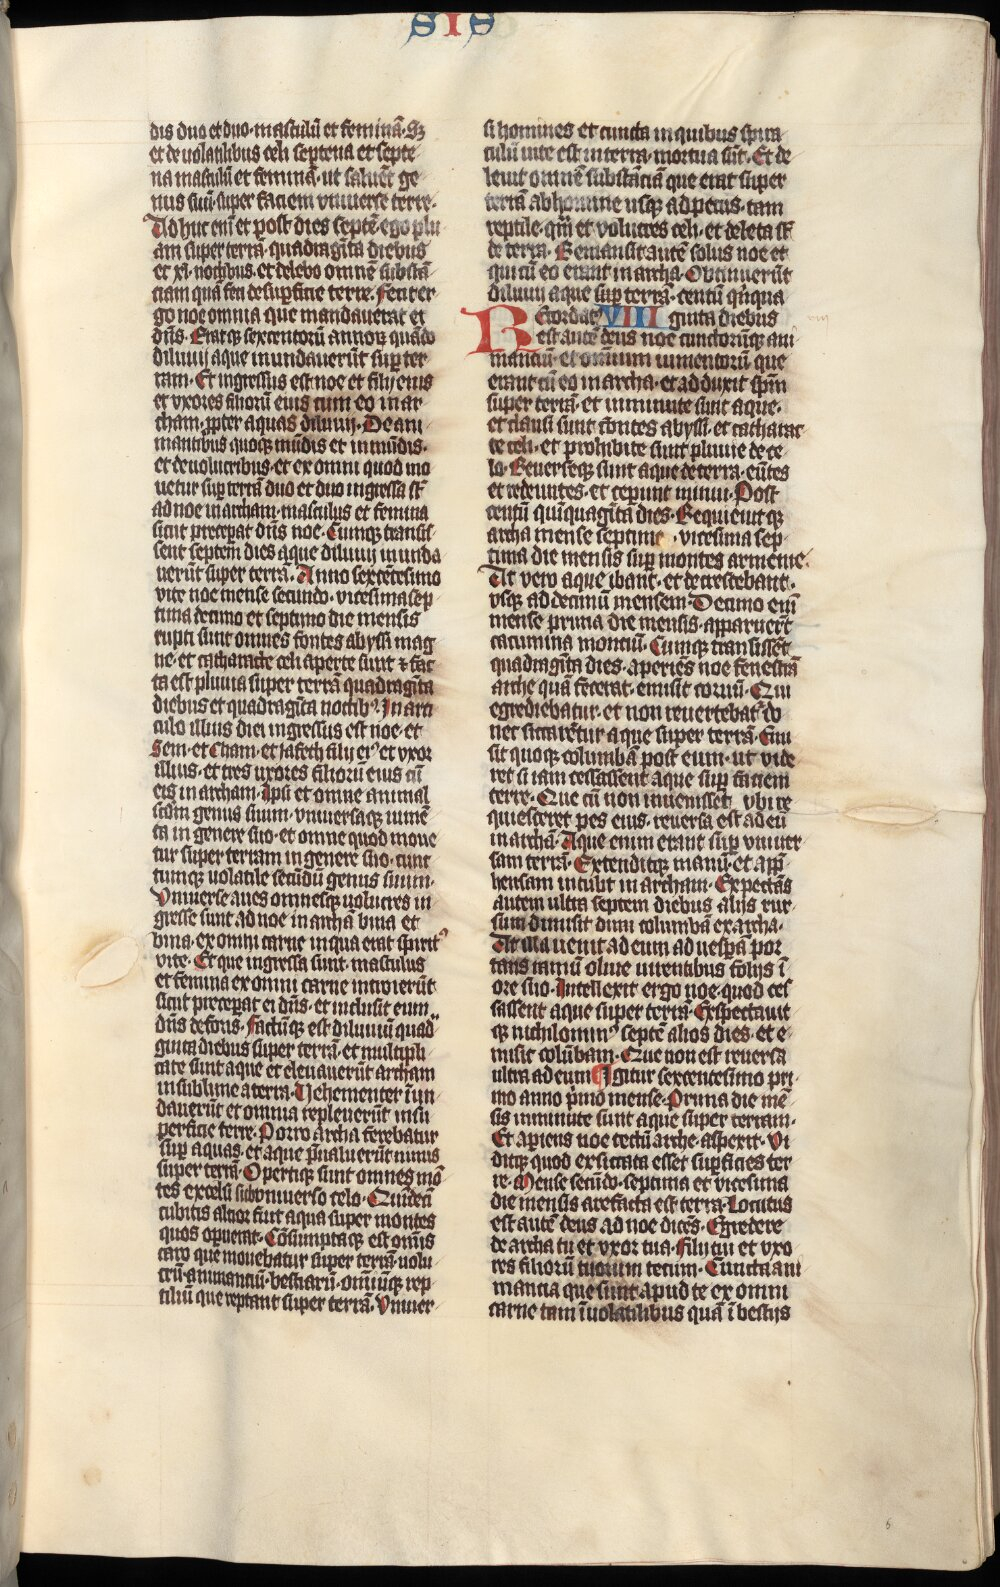 SIS
dis duo et duo· masculū et feminā· Sꝫ
et de uolatilibus celi septena et septe
na masculū et feminā· ut saluet̄ ge
nus suū· super faciem vniuerse terre·
Adhuc em̄ et post dies septē· ego plu
am super terrā· quadragīta diebus
et xl· noctibus· et delebo omnē substā
ciam quā feci de suꝑficie terre· Fecit er
go noe omnia que mandauerat ei
dn̄s· Eratqꝫ sexcentorū annoꝝ quādo
diluuij aque inundauerūt super ter
ram· Et ingressus est noe et filij eius
et vxores filiorū eius cum eo in ar
cham· ꝓpter aquas diluuij· De ani
mantibus quoqꝫ mūdis et inmūdis·
et de uolucribus· et ex omni quod mo
uetur suꝑ terrā duo et duo ingressa st̄
ad noe in archam· masculus et femina
sicut preceꝑat dn̄s noe· Cumqꝫ transis
sent septem dies aque diluuij inunda
uerūt super terrā· Anno sexcētesimo
vite noe mense secundo· vicesima sep
tima decimo et septimo die mensis
rupti sunt omnes fontes abyssi mag
ne· et catharacte celi aperte sunt ⁊ fac
ta est pluuia super terrā quadragīta
diebus et quadragīta noctibꝰ· In arti
culo illius diei ingressus est noe· et
Sem· et Cham· et Jafeth filij eiꝰ et vxor
illius· et tres uxores filiorū eius cū
eis in archam· Ipsi et omne animal
scd̄m genus suum· vniuersaqꝫ iumē
ta in genere suo· et omne quod moue
tur super terram in genere suo· cunc
tumqꝫ uolatile secūdū genus suum·
Vniuerse aues omnesqꝫ uolucres in
gresse sunt ad noe in archā bina et
bina· ex omni carne in qua erat spiritꝰ
vite· Et que ingressa sunt· masculus
et femina ex omni carne introierūt
sicut preceꝑat ei dn̄s· et inclusit eum
dn̄s deforis· Factūqꝫ est diluuiū quad
ginta diebus super terrā· et multipli
cate sunt aque et eleuauerūt archam
in sublime a terra· Vehementer īun
dauerūt et omnia repleuerūt in su
perficie terre· Porro archa ferebatur
suꝑ aquas· et aque p̄ualuerūt nimis
super terrā· Opertiqꝫ sunt omnes mō
tes excelsi sub vniuerso celo· Quīdecī
cubitis altior fuit aqua super montes
quos oꝑuerat· Cōsumptaqꝫ est omīs
caro que mouebatur super terrā· uolu
crū· animantiū· bestiarū· omīūqꝫ rep
tiliū que reptant super terrā· Vniuer
si homines et cuncta in quibus spira
culū uite est in terra· mortua sūt· Et de
leuit omnē substāciā que erat super
terrā ab homine usqꝫ ad pecus· tam
reptile· qm̄ et volucres celi· et deleta st̄
de terra· Remansit autē solus noe et
qui cū eo erant in archa· Obtinuerūt
diluuij aque suꝑ terrā· centū qīqua
Recordat VIII ginta diebus
est autē deus noe cunctorūqꝫ ani
mantiū· et omnium iumentorū que
erant cū eo in archa· et adduxit spm̄
super terrā· et imminute sunt aque·
et clausi sunt fontes abyssi· et catharac
te celi· et prohibite sunt pluuie de ce
lo· Reuerseqꝫ sunt aque de terra· eūtes
et redeuntes· et ceperunt minui· Post
centū quinquagīta dies· Requieuitqꝫ
archa mense septimo· vicesima sep
tima die mensis suꝑ montes armenie·
At vero aque ibant· et decrescebant·
vsqꝫ ad decimū mensem· Decimo em̄
mense prima die mensis· apparuert̄
cacumina montiū· Cumqꝫ transissēt
quadragīta dies· aperies noe fenestrā
arche quā fecerat· emisit coruū· Qui
egrediebatur· et non reuertebat̄ do
nec siccaretur aque super terrā· Emi
sit quoqꝫ columbā post eum· ut vide
ret si iam cessassent aque suꝑ faciem
terre· Que cū non inuenisset vbi re
quiesceret pes eius· reuersa est ad eū
in archā· Aque enim erant suꝑ vniuer
sam terrā· Extenditqꝫ manū· et app̄
hensam intulit in archam· Expectās
autem ultra septem diebus alijs rur
sum dimisit dum columbā ex archa·
At illa uenit ad eum ad uesꝑā por
tans ramū oliue uirentibus folijs ī
ore suo· Intellexit ergo noe· quod ces
sassent aque super terrā· Exspectauit
qꝫ nichilominꝰ septē alios dies· et e
misit colūbam· Que non est reuersa
ultra ad eum ¶ Igitur sexcentesimo pri
mo anno p̄mo mense· Prima die mē
sis imminute sunt aque super terram·
Et aꝑiens noe tectū arche· aspexit· Vi
ditqꝫ quod exsiccata esset suꝑficies ter
re· Mense secūdo· septima et vicesima
die mensis arefacta est terra· Locutus
est autē deus ad noe dicēs· Egredere
de archa tu et vxor tua· filij tui et vxo
res filiorū tuorum tecum· Cuncta ani
mancia que sunt apud te ex omni
carne tam ī uolatilibus quā ī bestijs
6